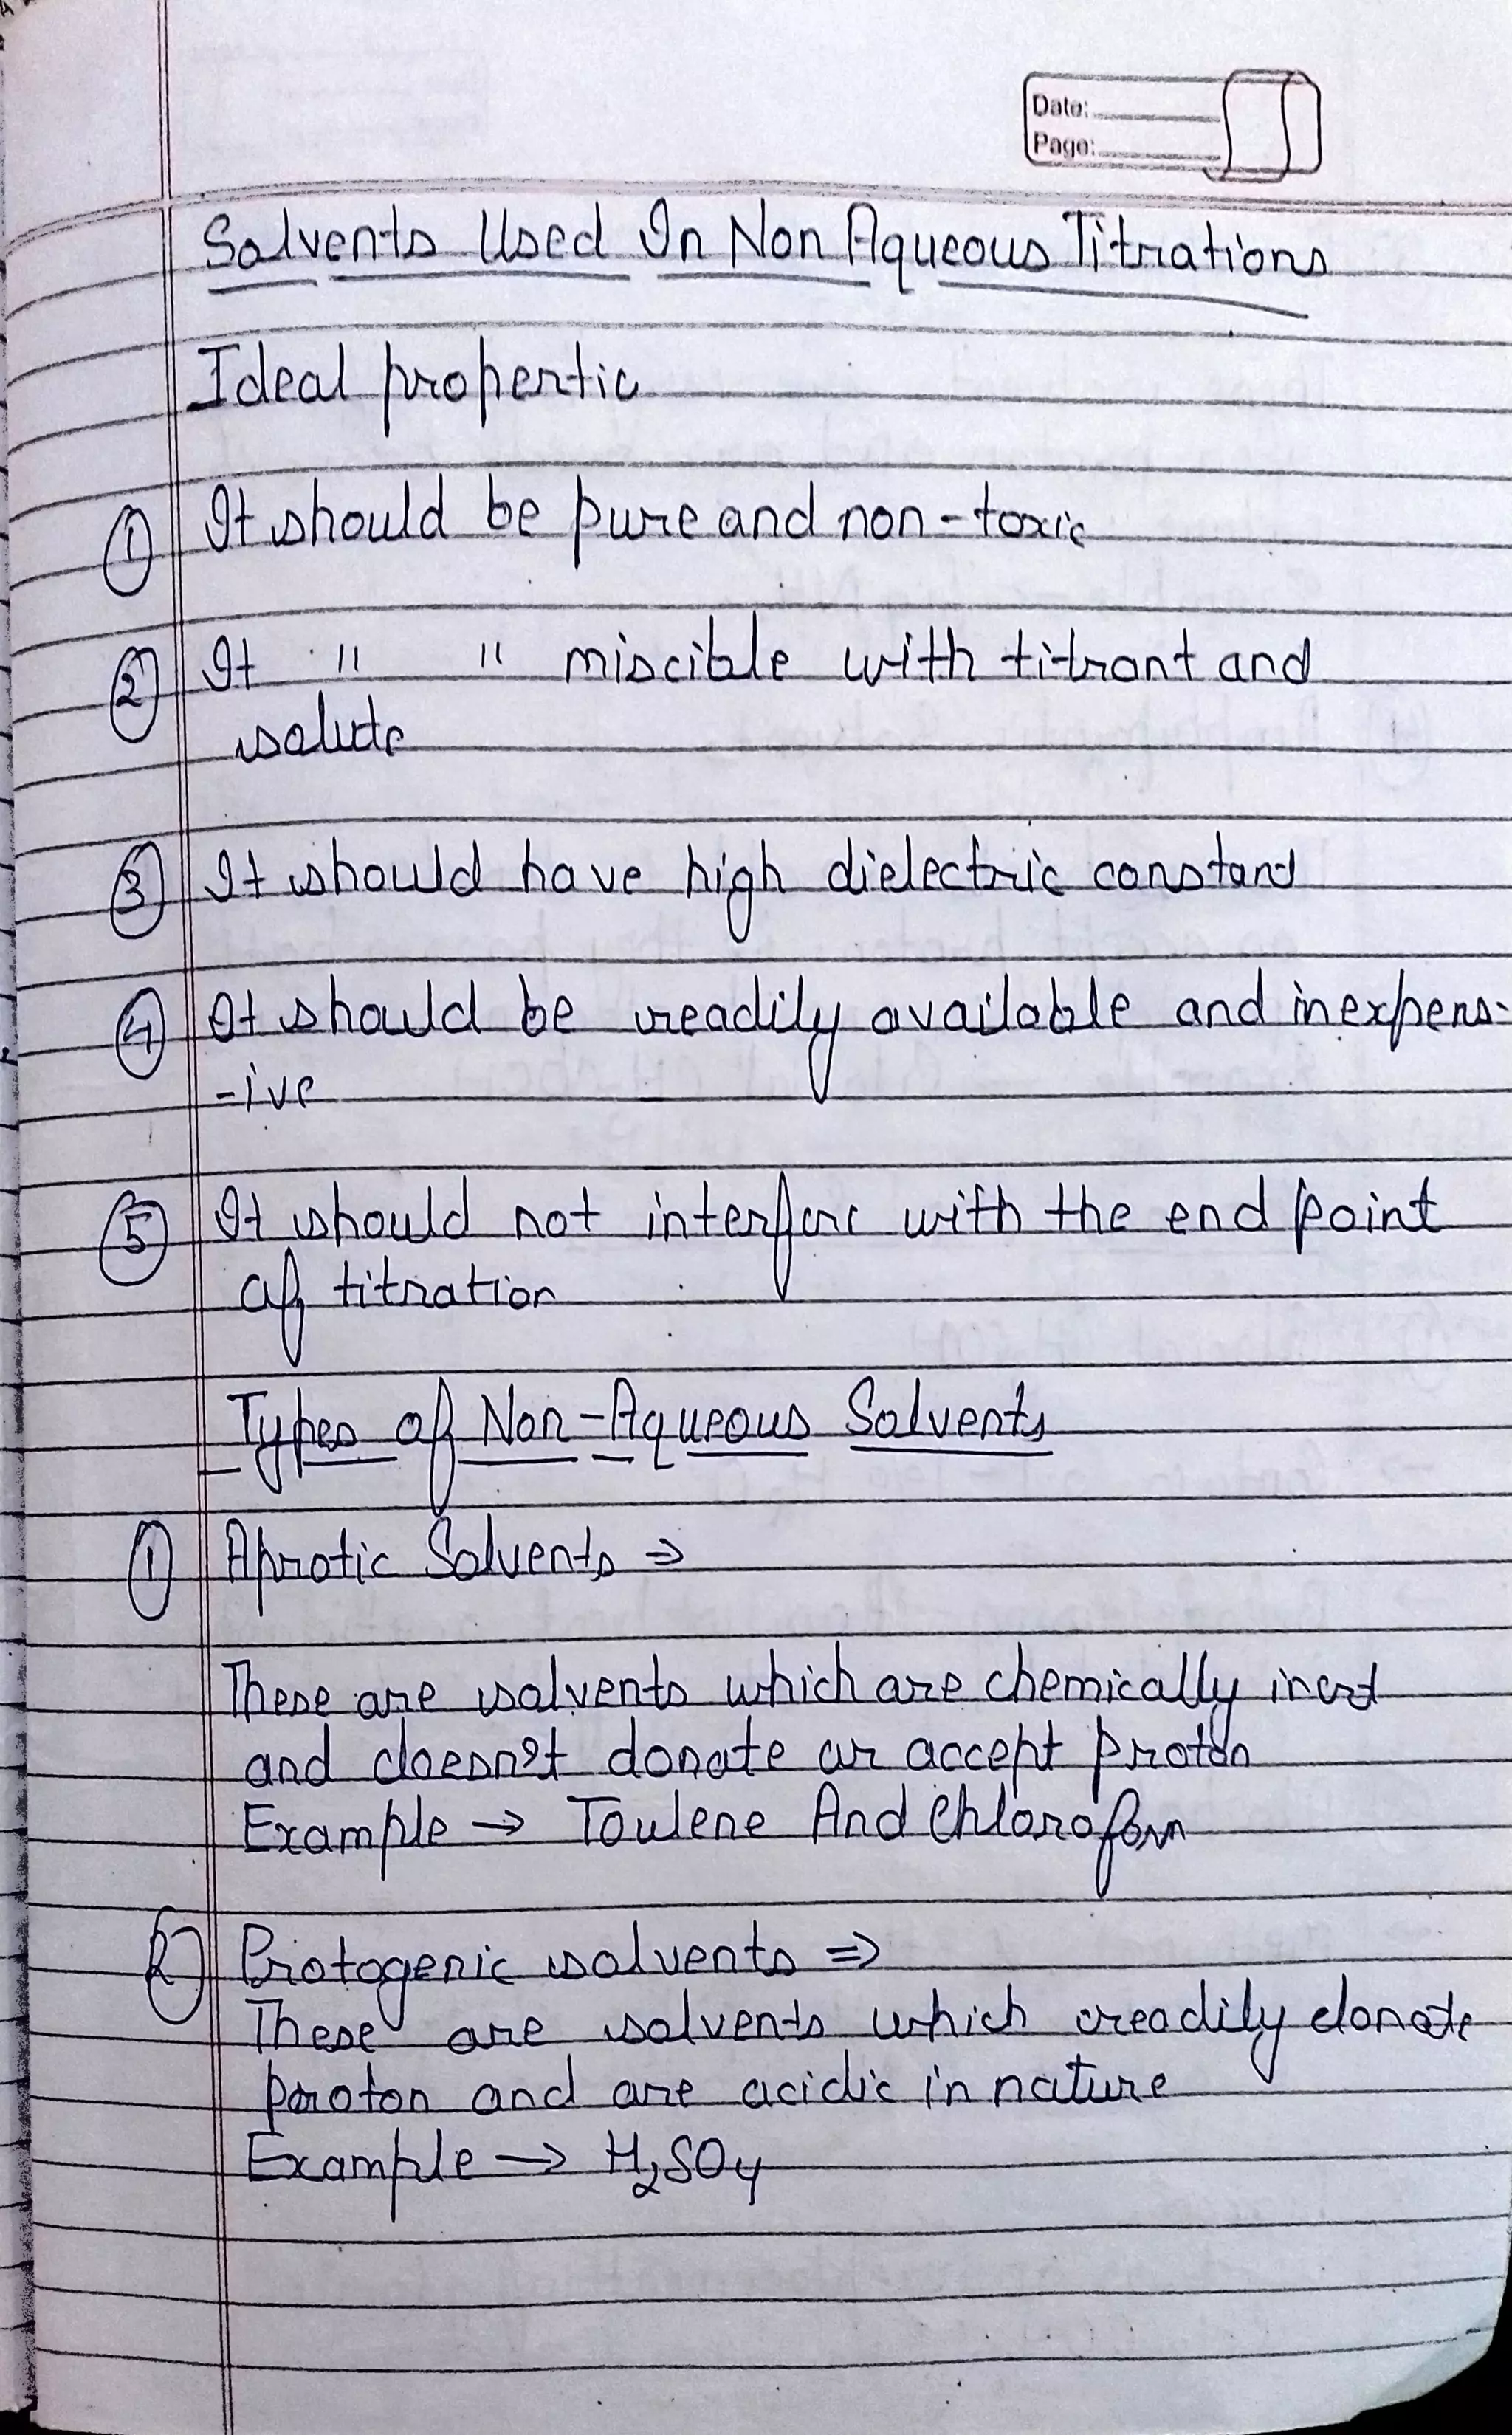 Date:
Page:
Solvents Used In Non Aqueous Titrations
Ideal propertie
① It should be pure and non-toxic
② It " " miscible with titrant and
solute
③ It should have high dielectric constant
④ It should be readily available and inexpens-
-ive
⑤ It should not interfere with the end point
of titration
Types of Non-Aqueous Solvents
① Aprotic Solvents ⇒
These are solvents which are chemically inert
and doesn't donate or accept proton
Example → Toulene And Chloroform
② Protogenic solvents ⇒
These are solvents which readily donate
proton and are acidic in nature
Example → H₂SO₄